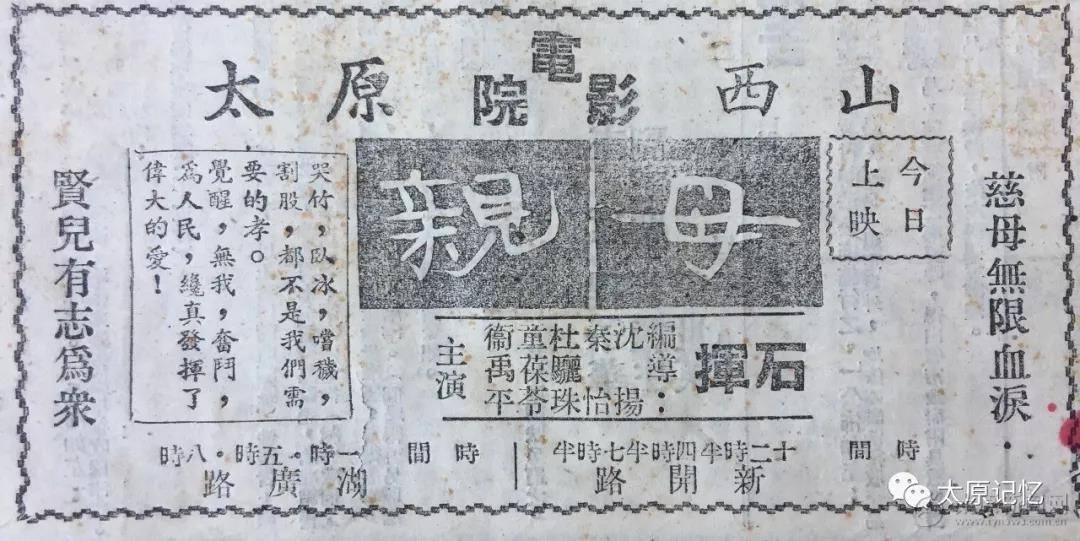 山西電影院太原
慈母無限血淚·
今日
上映
母親
哭竹，臥冰，嚐穢，
割股，都不是我們需
要的孝。
覺醒，無我，奮鬥，
爲人民，纔真發揮了
偉大的愛！
賢兒有志爲衆
編導：石揮
沈揚
秦怡
杜驪珠
童葆苓
衞禹平
主演
時間 十二時半四時半七時半
新開路
時間 一時·五時·八時
湖廣路
太原记忆